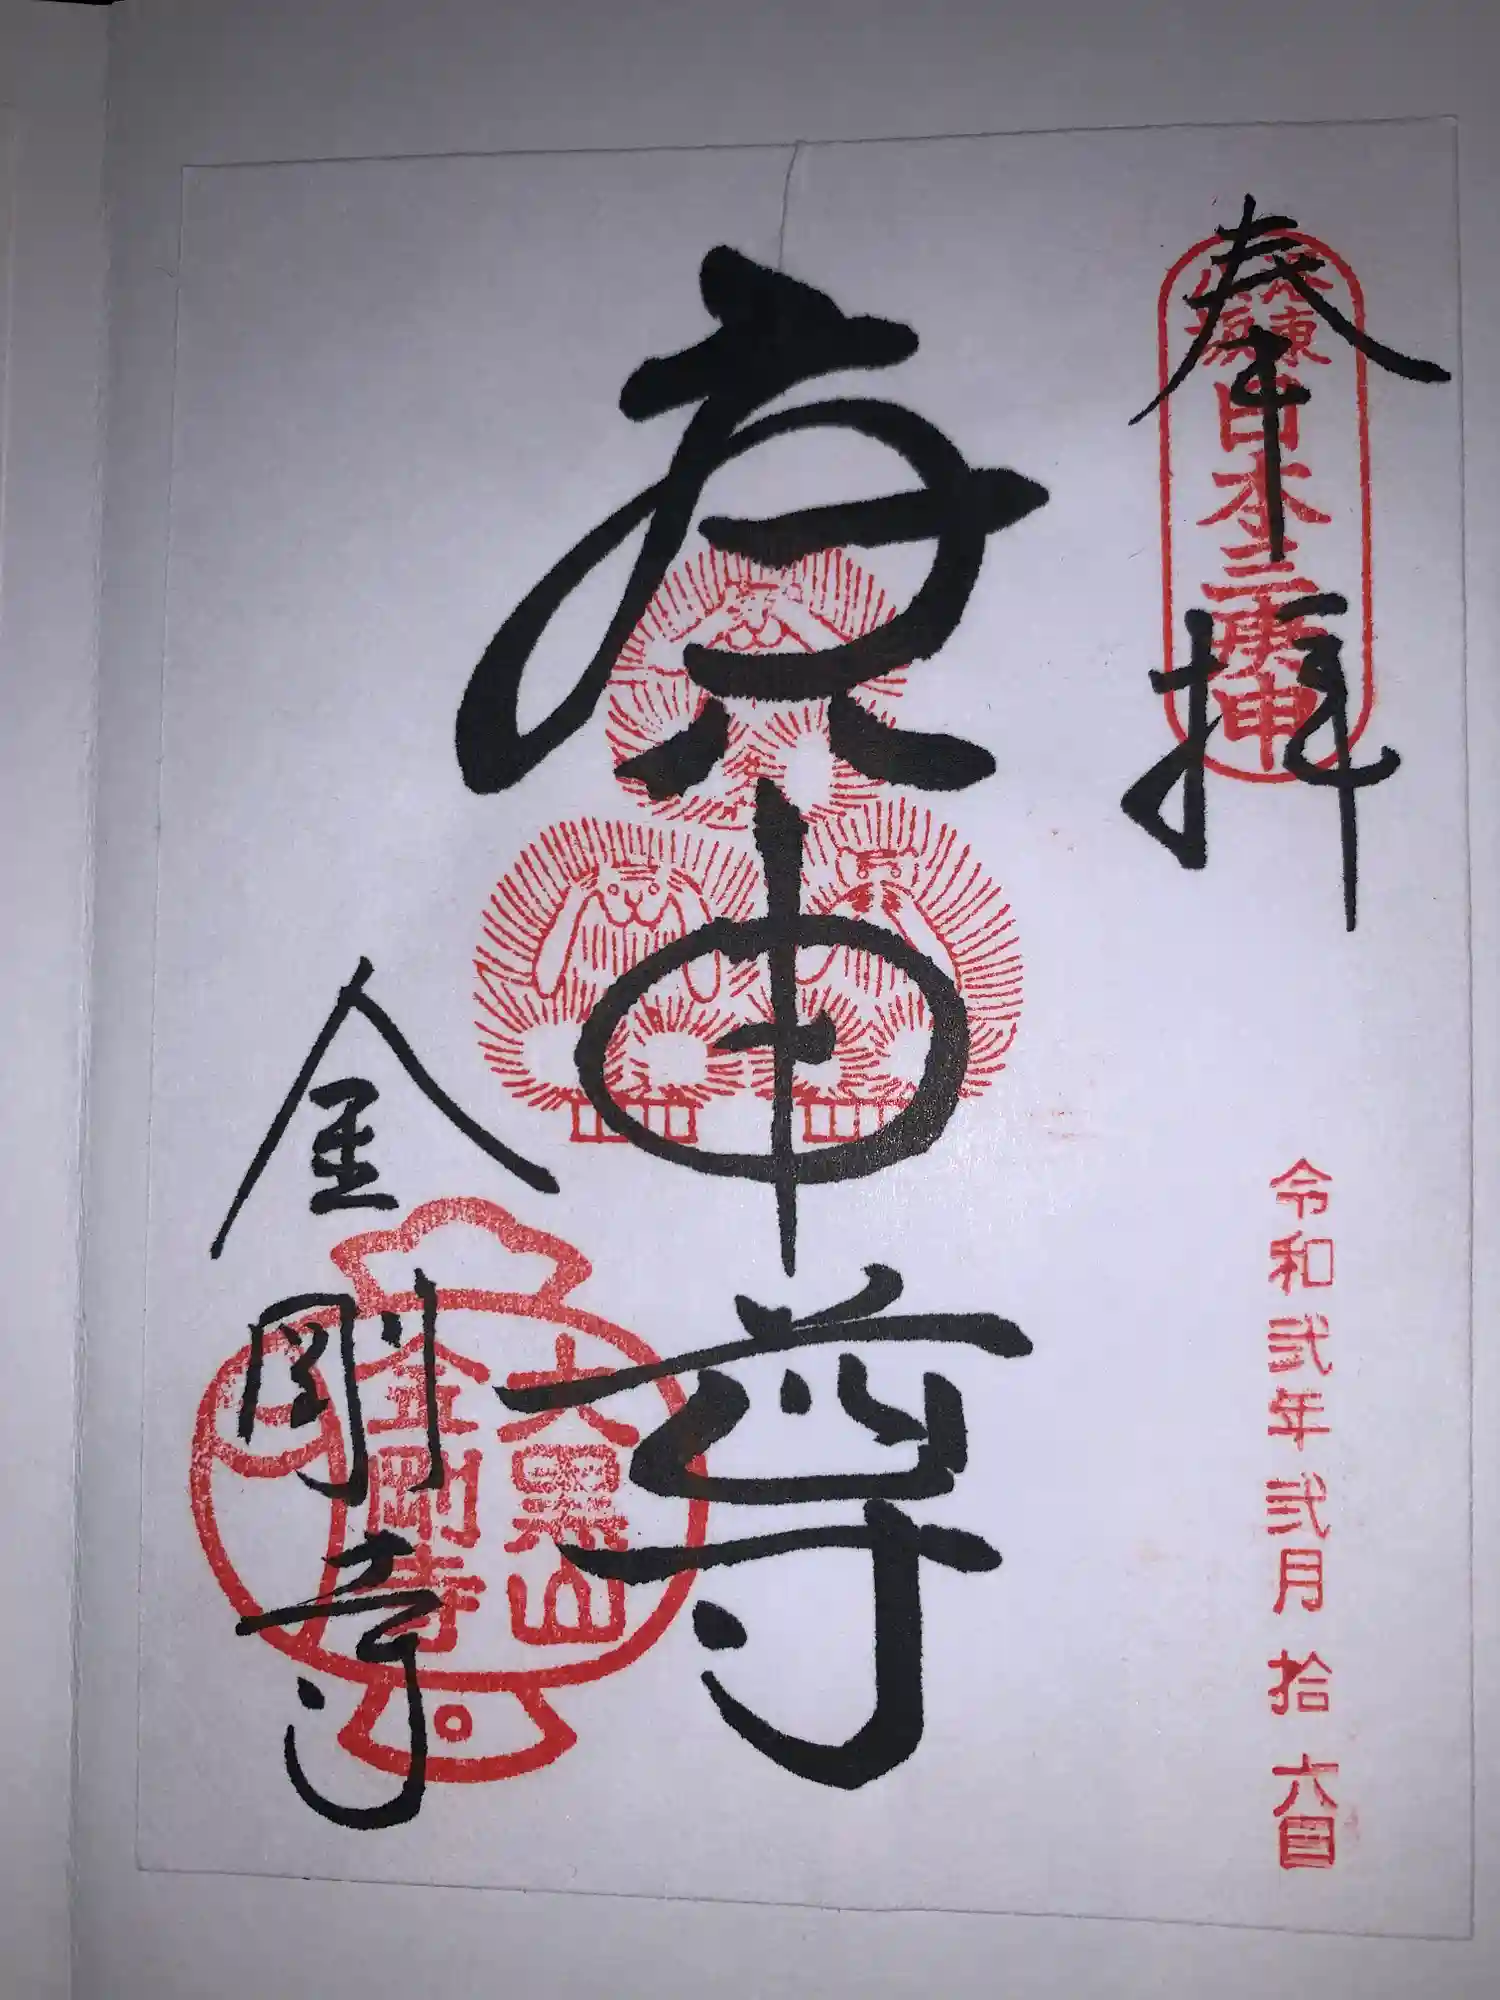 奉拝
洛東
八坂
日本三庚申
令和弐年弐月拾六日
庚申尊
大黒山
金剛寺
金剛寺